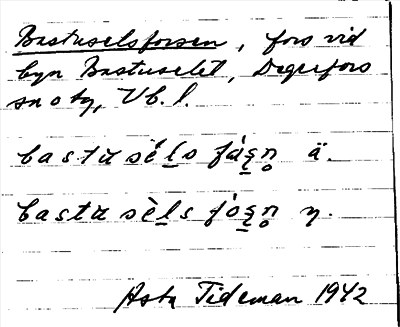 Bastuselsforsen, fors vid
byn Bastuselet, Degerfors
sn o tg, Vb. l.
bastʉ sè̀l̲s fá̀s̲n̥ ä.
bastʉ sè̀l̲s fó̀s̲n̥ y.
Asta Tideman 1942